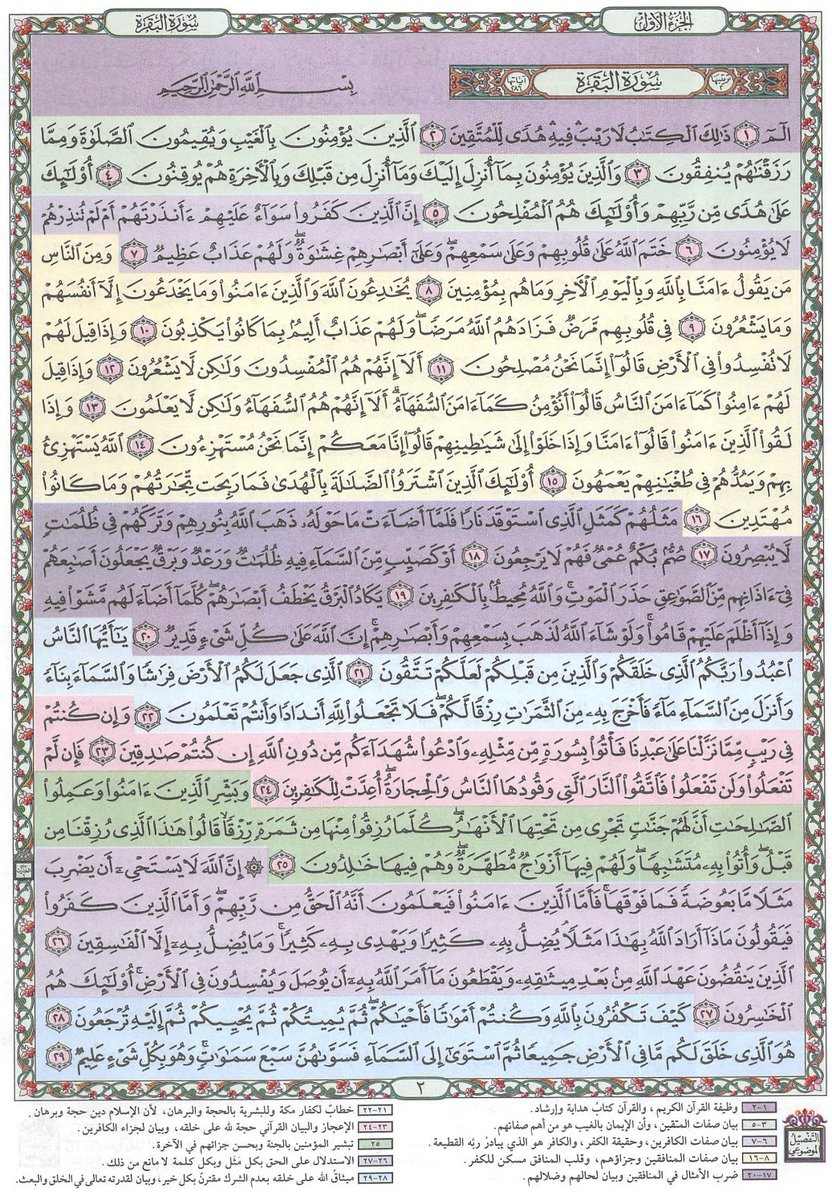 الجزء الأول
سورة البقرة
ترتيبها ٢
سورة البقرة
آياتها ٢٨٦
بِسْمِ اللَّهِ الرَّحْمَٰنِ الرَّحِيمِ
الٓمٓ ١ ذَٰلِكَ الْكِتَابُ لَا رَيْبَ فِيهِ هُدًى لِّلْمُتَّقِينَ ٢ الَّذِينَ يُؤْمِنُونَ بِالْغَيْبِ وَيُقِيمُونَ الصَّلَوٰةَ وَمِمَّا
رَزَقْنَاهُمْ يُنفِقُونَ ٣ وَالَّذِينَ يُؤْمِنُونَ بِمَا أُنزِلَ إِلَيْكَ وَمَا أُنزِلَ مِن قَبْلِكَ وَبِالْآخِرَةِ هُمْ يُوقِنُونَ ٤ أُوْلَٰٓئِكَ
عَلَىٰ هُدًى مِّن رَّبِّهِمْ وَأُوْلَٰٓئِكَ هُمُ الْمُفْلِحُونَ ٥ إِنَّ الَّذِينَ كَفَرُوا سَوَآءٌ عَلَيْهِمْ ءَأَنذَرْتَهُمْ أَمْ لَمْ تُنذِرْهُمْ
لَا يُؤْمِنُونَ ٦ خَتَمَ اللَّهُ عَلَىٰ قُلُوبِهِمْ وَعَلَىٰ سَمْعِهِمْ وَعَلَىٰ أَبْصَارِهِمْ غِشَاوَةٌ وَلَهُمْ عَذَابٌ عَظِيمٌ ٧ وَمِنَ النَّاسِ
مَن يَقُولُ ءَامَنَّا بِاللَّهِ وَبِالْيَوْمِ الْآخِرِ وَمَا هُم بِمُؤْمِنِينَ ٨ يُخَادِعُونَ اللَّهَ وَالَّذِينَ ءَامَنُوا وَمَا يَخْدَعُونَ إِلَّا أَنفُسَهُمْ
وَمَا يَشْعُرُونَ ٩ فِي قُلُوبِهِم مَّرَضٌ فَزَادَهُمُ اللَّهُ مَرَضًا وَلَهُمْ عَذَابٌ أَلِيمٌ بِمَا كَانُوا يَكْذِبُونَ ١٠ وَإِذَا قِيلَ لَهُمْ
لَا تُفْسِدُوا فِي الْأَرْضِ قَالُوا إِنَّمَا نَحْنُ مُصْلِحُونَ ١١ أَلَا إِنَّهُمْ هُمُ الْمُفْسِدُونَ وَلَٰكِن لَّا يَشْعُرُونَ ١٢ وَإِذَا قِيلَ
لَهُمْ ءَامِنُوا كَمَا ءَامَنَ النَّاسُ قَالُوا أَنُؤْمِنُ كَمَا ءَامَنَ السُّفَهَاءُ أَلَا إِنَّهُمْ هُمُ السُّفَهَاءُ وَلَٰكِن لَّا يَعْلَمُونَ ١٣ وَإِذَا
لَقُوا الَّذِينَ ءَامَنُوا قَالُوا ءَامَنَّا وَإِذَا خَلَوْا إِلَىٰ شَيَاطِينِهِمْ قَالُوا إِنَّا مَعَكُمْ إِنَّمَا نَحْنُ مُسْتَهْزِءُونَ ١٤ اللَّهُ يَسْتَهْزِئُ
بِهِمْ وَيَمُدُّهُمْ فِي طُغْيَانِهِمْ يَعْمَهُونَ ١٥ أُوْلَٰٓئِكَ الَّذِينَ اشْتَرَوُا الضَّلَالَةَ بِالْهُدَىٰ فَمَا رَبِحَت تِّجَارَتُهُمْ وَمَا كَانُوا
مُهْتَدِينَ ١٦ مَثَلُهُمْ كَمَثَلِ الَّذِي اسْتَوْقَدَ نَارًا فَلَمَّا أَضَاءَتْ مَا حَوْلَهُ ذَهَبَ اللَّهُ بِنُورِهِمْ وَتَرَكَهُمْ فِي ظُلُمَاتٍ
لَّا يُبْصِرُونَ ١٧ صُمٌّ بُكْمٌ عُمْيٌ فَهُمْ لَا يَرْجِعُونَ ١٨ أَوْ كَصَيِّبٍ مِّنَ السَّمَاءِ فِيهِ ظُلُمَاتٌ وَرَعْدٌ وَبَرْقٌ يَجْعَلُونَ أَصَابِعَهُمْ
فِي ءَاذَانِهِم مِّنَ الصَّوَاعِقِ حَذَرَ الْمَوْتِ وَاللَّهُ مُحِيطٌ بِالْكَافِرِينَ ١٩ يَكَادُ الْبَرْقُ يَخْطَفُ أَبْصَارَهُمْ كُلَّمَا أَضَاءَ لَهُم مَّشَوْا فِيهِ
وَإِذَا أَظْلَمَ عَلَيْهِمْ قَامُوا وَلَوْ شَاءَ اللَّهُ لَذَهَبَ بِسَمْعِهِمْ وَأَبْصَارِهِمْ إِنَّ اللَّهَ عَلَىٰ كُلِّ شَيْءٍ قَدِيرٌ ٢٠ يَا أَيُّهَا النَّاسُ
اعْبُدُوا رَبَّكُمُ الَّذِي خَلَقَكُمْ وَالَّذِينَ مِن قَبْلِكُمْ لَعَلَّكُمْ تَتَّقُونَ ٢١ الَّذِي جَعَلَ لَكُمُ الْأَرْضَ فِرَاشًا وَالسَّمَاءَ بِنَاءً
وَأَنزَلَ مِنَ السَّمَاءِ مَاءً فَأَخْرَجَ بِهِ مِنَ الثَّمَرَاتِ رِزْقًا لَّكُمْ فَلَا تَجْعَلُوا لِلَّهِ أَندَادًا وَأَنتُمْ تَعْلَمُونَ ٢٢ وَإِن كُنتُمْ
فِي رَيْبٍ مِّمَّا نَزَّلْنَا عَلَىٰ عَبْدِنَا فَأْتُوا بِسُورَةٍ مِّن مِّثْلِهِ وَادْعُوا شُهَدَاءَكُم مِّن دُونِ اللَّهِ إِن كُنتُمْ صَادِقِينَ ٢٣ فَإِن لَّمْ
تَفْعَلُوا وَلَن تَفْعَلُوا فَاتَّقُوا النَّارَ الَّتِي وَقُودُهَا النَّاسُ وَالْحِجَارَةُ أُعِدَّتْ لِلْكَافِرِينَ ٢٤ وَبَشِّرِ الَّذِينَ ءَامَنُوا وَعَمِلُوا
الصَّالِحَاتِ أَنَّ لَهُمْ جَنَّاتٍ تَجْرِي مِن تَحْتِهَا الْأَنْهَارُ كُلَّمَا رُزِقُوا مِنْهَا مِن ثَمَرَةٍ رِّزْقًا قَالُوا هَٰذَا الَّذِي رُزِقْنَا مِن
قَبْلُ وَأُتُوا بِهِ مُتَشَابِهًا وَلَهُمْ فِيهَا أَزْوَاجٌ مُّطَهَّرَةٌ وَهُمْ فِيهَا خَالِدُونَ ٢٥ ۞ إِنَّ اللَّهَ لَا يَسْتَحْيِي أَن يَضْرِبَ
مَثَلًا مَّا بَعُوضَةً فَمَا فَوْقَهَا فَأَمَّا الَّذِينَ ءَامَنُوا فَيَعْلَمُونَ أَنَّهُ الْحَقُّ مِن رَّبِّهِمْ وَأَمَّا الَّذِينَ كَفَرُوا
فَيَقُولُونَ مَاذَا أَرَادَ اللَّهُ بِهَٰذَا مَثَلًا يُضِلُّ بِهِ كَثِيرًا وَيَهْدِي بِهِ كَثِيرًا وَمَا يُضِلُّ بِهِ إِلَّا الْفَاسِقِينَ ٢٦
الَّذِينَ يَنقُضُونَ عَهْدَ اللَّهِ مِن بَعْدِ مِيثَاقِهِ وَيَقْطَعُونَ مَا أَمَرَ اللَّهُ بِهِ أَن يُوصَلَ وَيُفْسِدُونَ فِي الْأَرْضِ أُوْلَٰٓئِكَ هُمُ
الْخَاسِرُونَ ٢٧ كَيْفَ تَكْفُرُونَ بِاللَّهِ وَكُنتُمْ أَمْوَاتًا فَأَحْيَاكُمْ ثُمَّ يُمِيتُكُمْ ثُمَّ يُحْيِيكُمْ ثُمَّ إِلَيْهِ تُرْجَعُونَ ٢٨
هُوَ الَّذِي خَلَقَ لَكُم مَّا فِي الْأَرْضِ جَمِيعًا ثُمَّ اسْتَوَىٰ إِلَى السَّمَاءِ فَسَوَّاهُنَّ سَبْعَ سَمَاوَاتٍ وَهُوَ بِكُلِّ شَيْءٍ عَلِيمٌ ٢٩
٢
التفصيل الموضوعي
١-٢ وظيفة القرآن الكريم، والقرآن كتابُ هداية وإرشاد.
٣-٥ بيان صفات المتقين، وأن الإيمان بالغيب هو من أهم صفاتهم.
٦-٧ بيان صفات الكافرين، وحقيقة الكفر، والكافر هو الذي يبادرُ ربَّه القطيعة.
٨-١٦ بيان صفات المنافقين وجزاؤهم، وقلب المنافق مسكن للكفر.
١٧-٢٠ ضرب الأمثال في المنافقين وبيان لحالهم وضلالهم.
٢١-٢٢ خطابٌ لكفار مكة وللبشرية بالحجة والبرهان، لأن الإسلام دين حجة وبرهان.
٢٣-٢٤ الإعجاز والبيان القرآني حجة لله على خلقه، وبيان لجزاء الكافرين.
٢٥ تبشير المؤمنين بالجنة وبحسن جزائهم في الآخرة.
٢٦-٢٧ الاستدلال على الحق بكل مَثَل وبكل كلمة لا مانع من ذلك.
٢٨-٢٩ ميثاقُ الله على خلقه بعدم الشرك مقترنٌ بكل خير، وبيان لقدرته تعالى في الخلق والبعث.